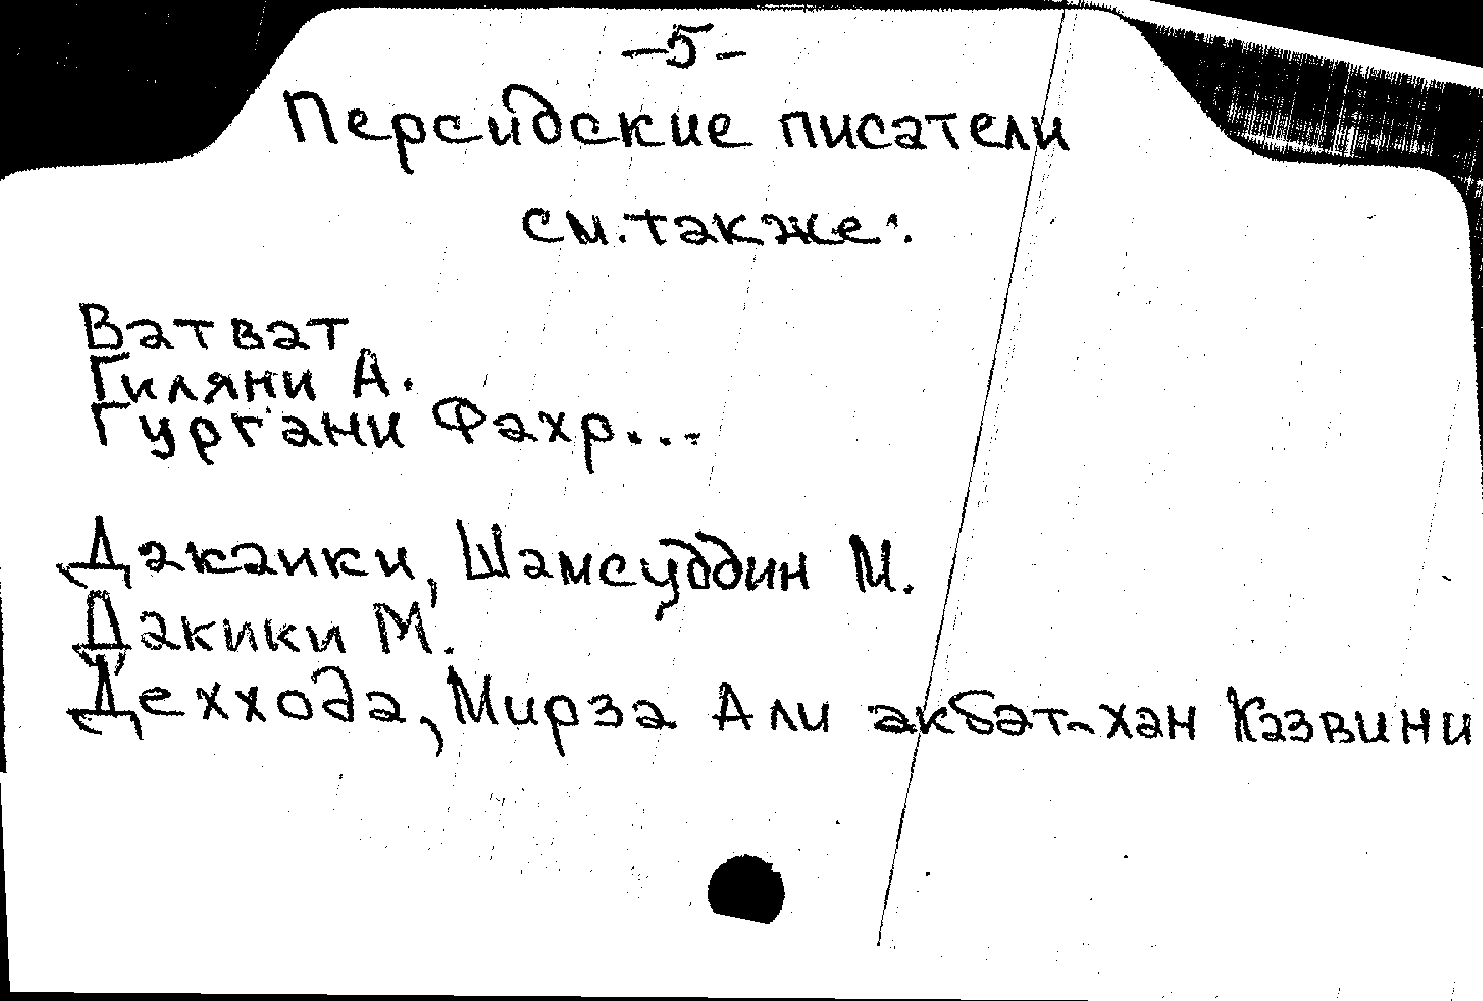 -5-
Персидские писатели
см. также:
Ватват
Гиляни А.
Гургани Фахр...
Дакаики, Шамсуддин М.
Дакики М.
Деххода, Мирза Али акбат-хан Казвини